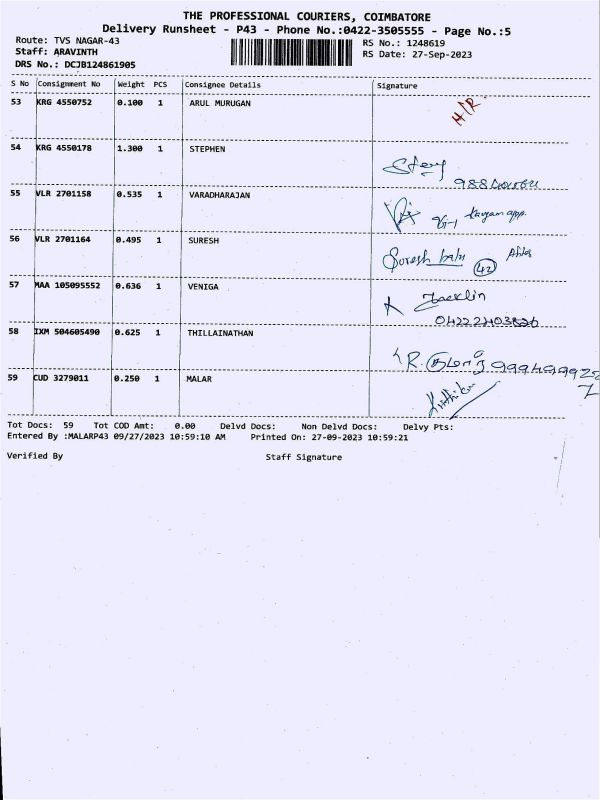 THE PROFESSIONAL COURIERS, COIMBATORE
Delivery Runsheet - P43 - Phone No.:0422-3505555 - Page No.:5
Route: TVS NAGAR-43 RS No.: 1248619
Staff: ARAVINTH RS Date: 27-Sep-2023
DRS No.: DCJB124861905
S No Consignment No Weight PCS Consignee Details Signature
53 KRG 4550752 0.100 1 ARUL MURUGAN
54 KRG 4550178 1.300 1 STEPHEN
55 VLR 2701158 0.535 1 VARADHARAJAN
56 VLR 2701164 0.495 1 SURESH Suresh babu 42
57 MAA 105095552 0.636 1 VENIGA Jacklin
58 IXM 504605490 0.625 1 THILLAINATHAN
59 CUD 3279011 0.250 1 MALAR
Tot Docs: 59 Tot COD Amt: 0.00 Delvd Docs: Non Delvd Docs: Delvy Pts:
Entered By :MALARP43 09/27/2023 10:59:10 AM Printed On: 27-09-2023 10:59:21
Verified By Staff Signature